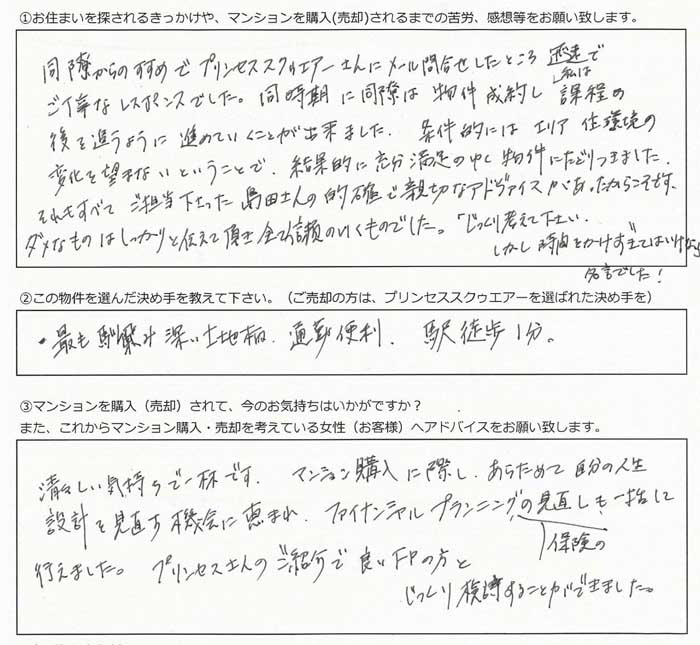 ①お住まいを探されるきっかけや、マンションを購入(売却)されるまでの苦労、感想等をお願い致します。
同僚からのすすめでプリンセススクゥエアーさんにメール問合せしたところ 迅速で
ご丁寧なレスポンスでした。同時期に同僚は物件成約し 私は 課程の
後を追うように進めていくことが出来ました。条件的にはエリア 住環境の
変化を望まないということで、結果的に充分満足のゆく物件にたどりつきました。
それもすべてご担当下さった島田さんの的確で親切なアドヴァイスがあったからこそです。
ダメなものはしっかりと伝えて頂き全て納得のいくものでした。「じっくり考えて下さい。
しかし時間をかけすぎてはいけない
名言でした!
②この物件を選んだ決め手を教えて下さい。（ご売却の方は、プリンセススクゥエアーを選ばれた決め手を）
・最も馴染み深い土地柄、通勤便利、駅徒歩1分。
③マンションを購入（売却）されて、今のお気持ちはいかがですか？
また、これからマンション購入・売却を考えている女性（お客様）へアドバイスをお願い致します。
清々しい気持ちで一杯です。マンション購入に際し、あらためて自分の人生
設計を見直す機会に恵まれ、ファイナンシャルプランニング、保険の見直しも一括して
行えました。プリンセスさんのご紹介で良いFPの方と
じっくり検討することができました。